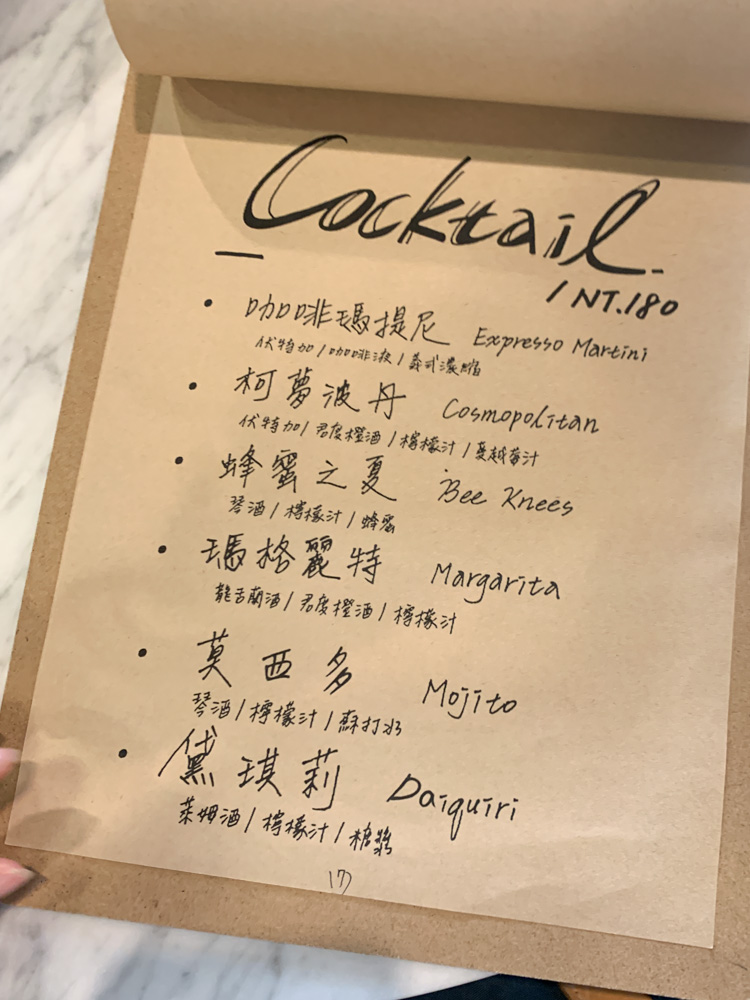 Cocktail.
/ NT.180
• 咖啡瑪提尼 Expresso Martini
伏特加 / 咖啡液 / 義式濃縮
• 柯夢波丹 Cosmopolitan
伏特加 / 君度橙酒 / 檸檬汁 / 蔓越莓汁
• 蜂蜜之夏 Bee Knees
琴酒 / 檸檬汁 / 蜂蜜
• 瑪格麗特 Margarita
龍舌蘭酒 / 君度橙酒 / 檸檬汁
• 莫西多 Mojito
琴酒 / 檸檬汁 / 蘇打水
• 黛琪莉 Daiquiri
萊姆酒 / 檸檬汁 / 糖漿
17)